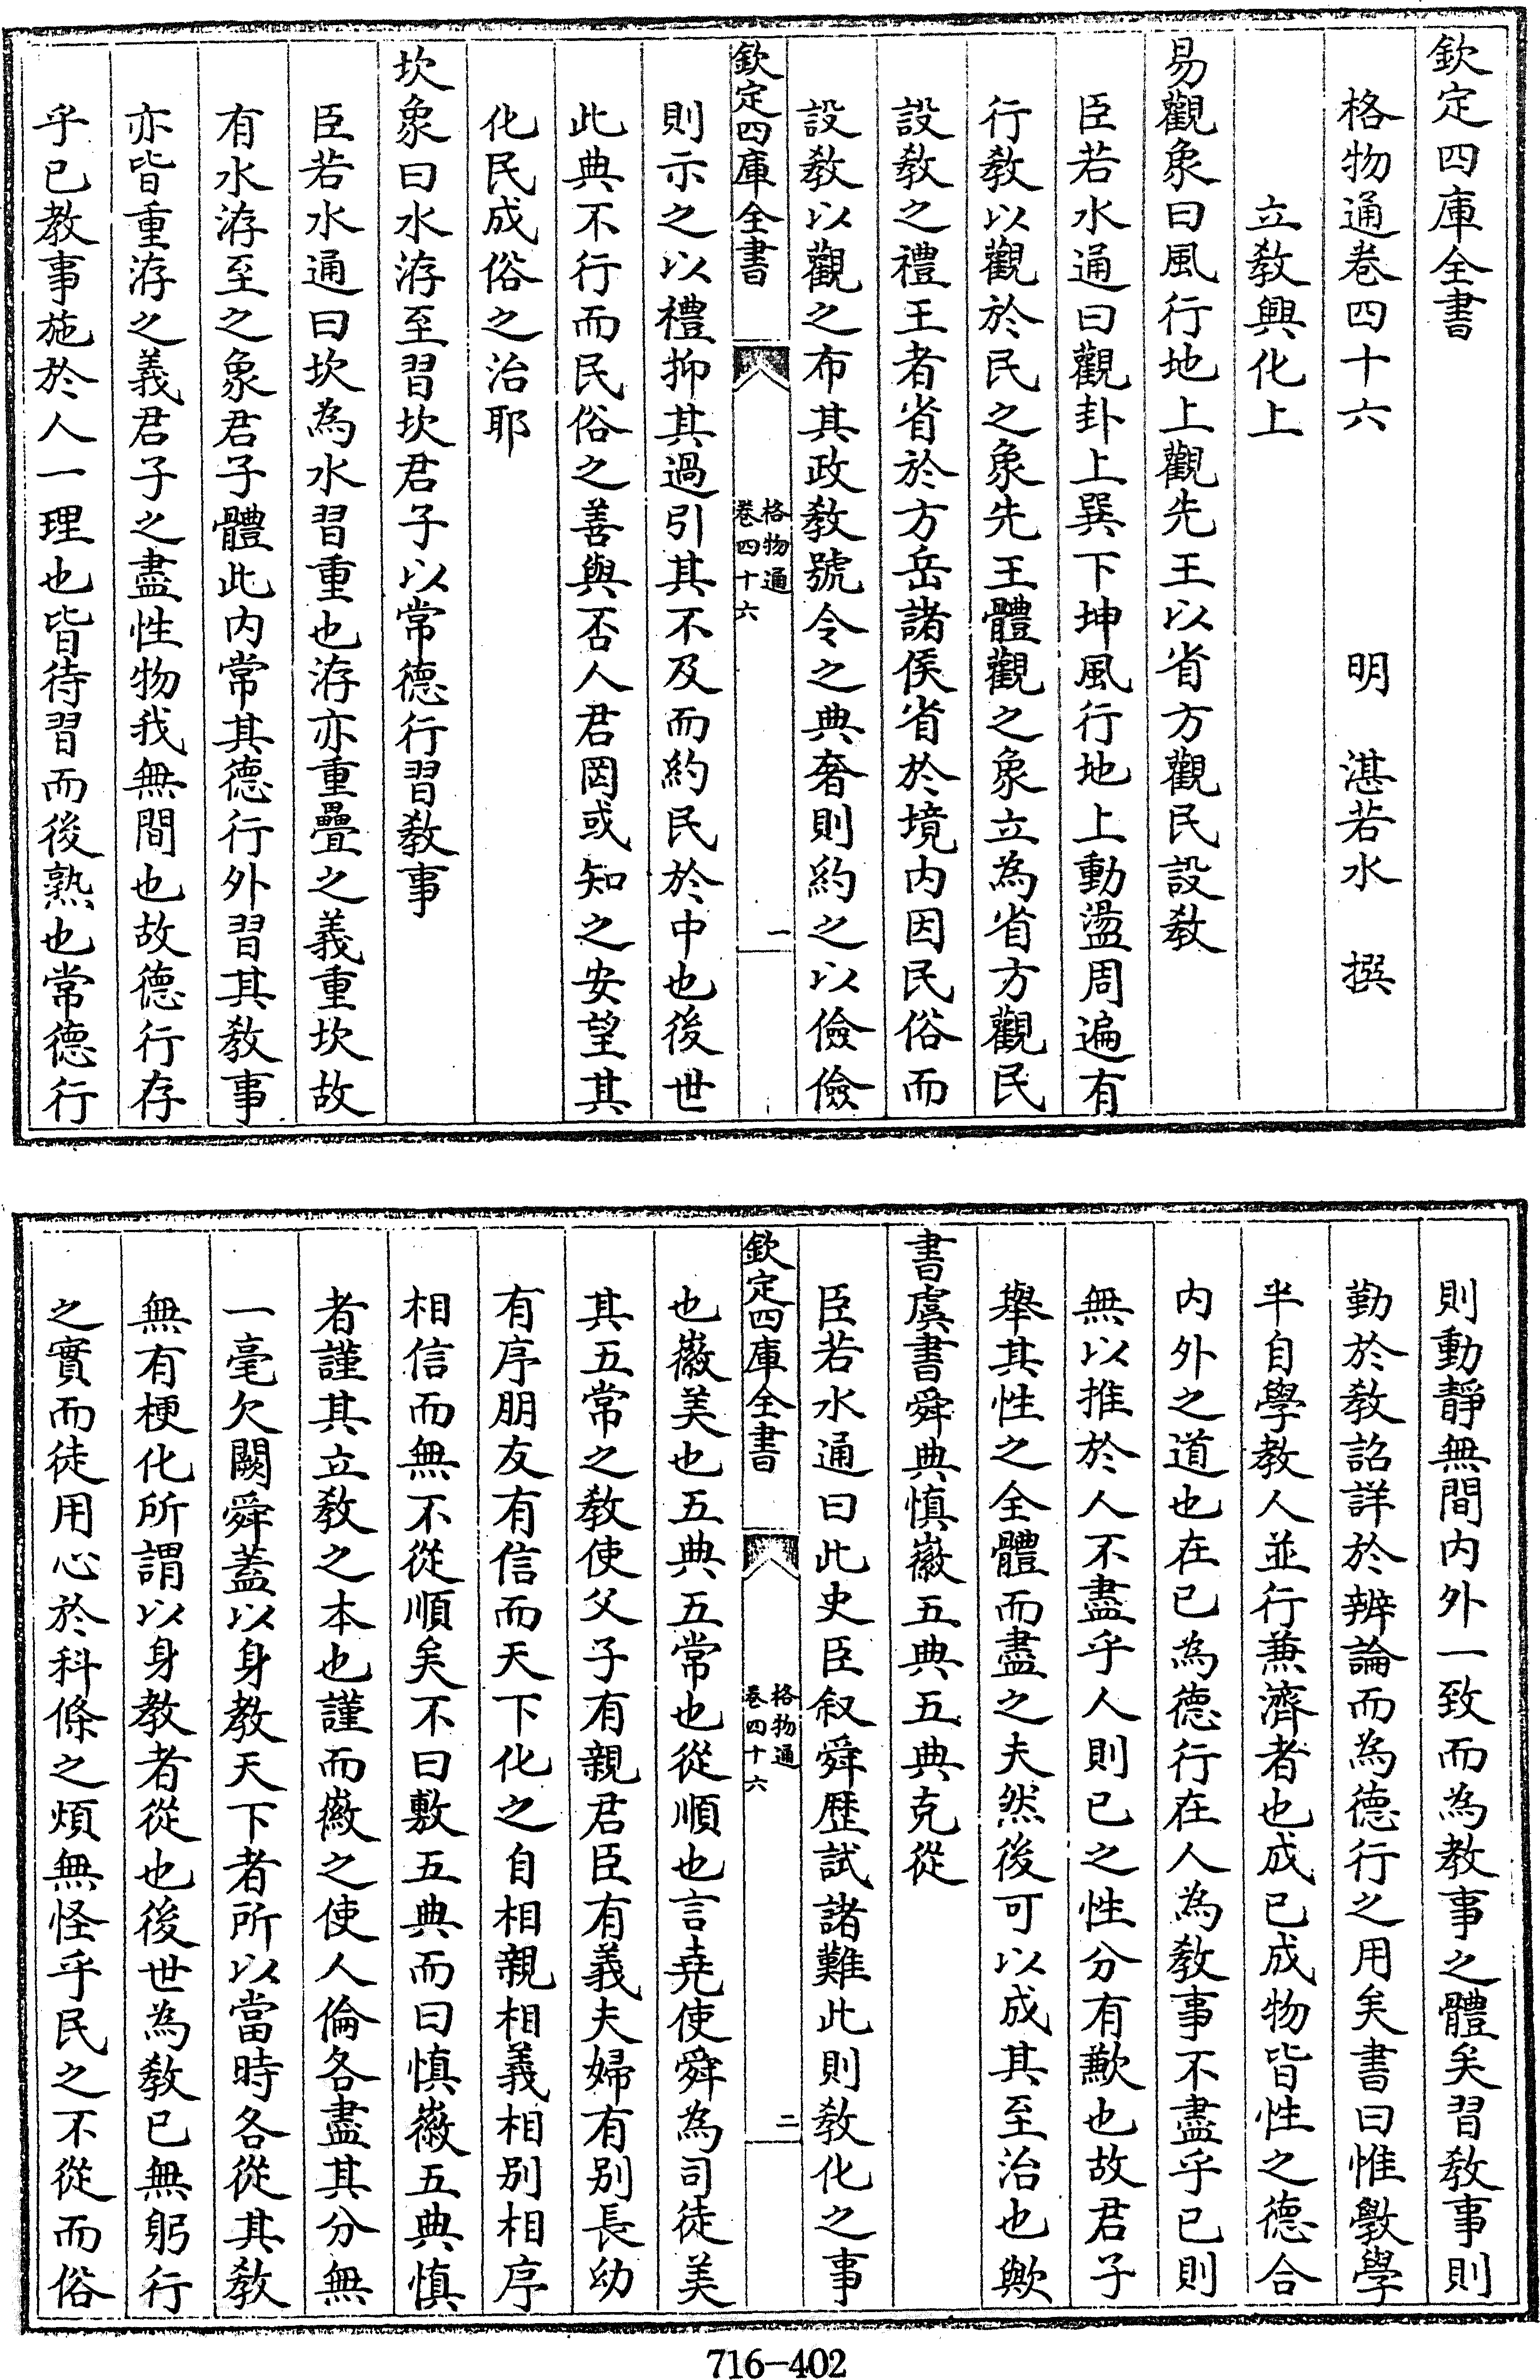 欽定四庫全書
格物通卷四十六　明　湛若水　撰
立教興化上
易觀象曰風行地上觀先王以省方觀民設教
臣若水通曰觀卦上巽下坤風行地上動盪周遍有
行教以觀於民之象先王體觀之象立為省方觀民
設教之禮王者省於方岳諸侯省於境内因民俗而
設教以觀之布其政教號令之典奢則約之以儉儉
欽定四庫全書　格物通卷四十六　一
則示之以禮抑其過引其不及而約民於中也後世
此典不行而民俗之善與否人君罔或知之安望其
化民成俗之治耶
坎象曰水洊至習坎君子以常德行習教事
臣若水通曰坎為水習重也洊亦重疊之義重坎故
有水洊至之象君子體此内常其德行外習其教事
亦皆重洊之義君子之盡性物我無間也故德行存
乎已教事施於人一理也皆待習而後熟也常德行
則動靜無間内外一致而為教事之體矣習教事則
勤於教詔詳於辨論而為德行之用矣書曰惟斆學
半自學教人並行兼濟者也成已成物皆性之德合
内外之道也在已為德行在人為教事不盡乎已則
無以推於人不盡乎人則已之性分有歉也故君子
舉其性之全體而盡之夫然後可以成其至治也歟
書虞書舜典慎徽五典五典克從
臣若水通曰此史臣叙舜歷試諸難此則教化之事
欽定四庫全書　格物通卷四十六　二
也徽美也五典五常也從順也言堯使舜為司徒美
其五常之教使父子有親君臣有義夫婦有别長幼
有序朋友有信而天下化之自相親相義相别相序
相信而無不從順矣不曰敷五典而曰慎徽五典慎
者謹其立教之本也謹而徽之使人倫各盡其分無
一毫欠闕舜蓋以身教天下者所以當時各從其教
無有梗化所謂以身教者從也後世為教已無躬行
之實而徒用心於科條之煩無怪乎民之不從而俗
716-402